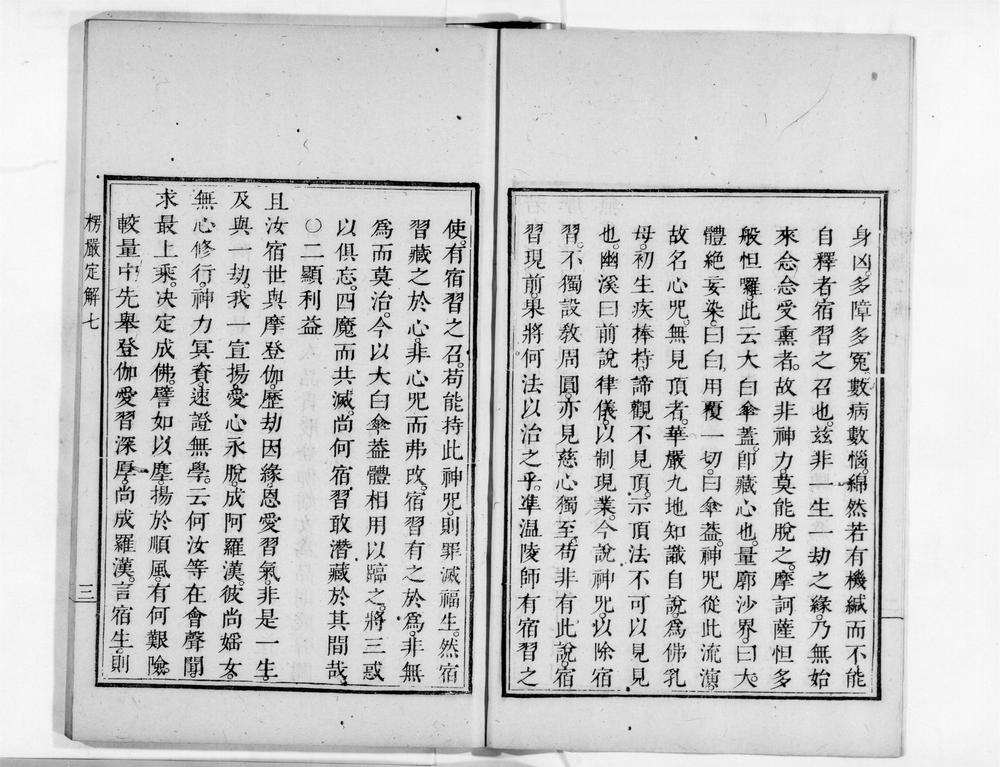 身凶。多障多冤。數病數惱。綿然若有機緘而不能
自釋者宿習之召也。茲非一生一劫之緣。乃無始
來念念受熏者。故非神力。莫能脫之。摩訶薩怛多
般怛囉。此云大白傘蓋。卽藏心也。量廓沙界。曰大。
體絕妄染。曰白。用覆一切。曰傘葢。神咒從此流演。
故名心咒。無見頂者。華嚴九地知識自說。爲佛乳
母。初生疾棒持。諦觀不見頂。示頂法不可以見見
也。幽溪曰前說律儀。以制現業。今說神咒。以除宿
習。不獨設敎周圓。亦見慈心獨至。苟非有此說。宿
習現前。果將何法以治之乎。準温陵師有宿習之
使。有宿習之召。苟能持此神咒。則罪滅福生。然宿
習藏之於心。非心咒而弗改。宿習有之於爲。非無
爲而莫治。今以大白傘葢體相用以臨之。將三惑
以俱忘。四魔而共滅。尚何宿習敢潛藏於其間哉
〇二顯利益
且汝宿世與摩登伽。歷劫因緣恩愛習氣。非是一生
及與一劫。我一宣揚。愛心永脫。成阿羅漢。彼尚婬女。
無心修行。神力冥資。速證無學。云何汝等在會聲聞。
求最上乘。決定成佛。譬如以塵揚於順風。有何艱險
較量中。先舉登伽愛習深厚。尚成羅漢。言宿生。則
楞嚴定解七
三